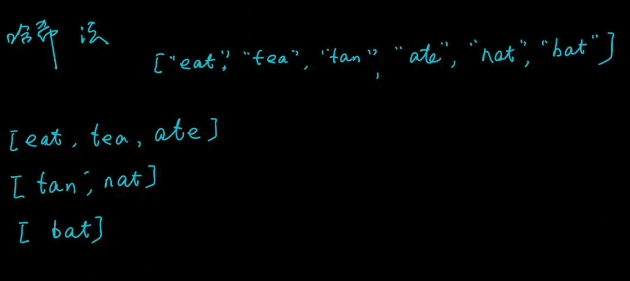 哈希 法
["eat", "tea", "tan", "ate", "nat", "bat"]
[eat, tea, ate]
[tan, nat]
[bat]